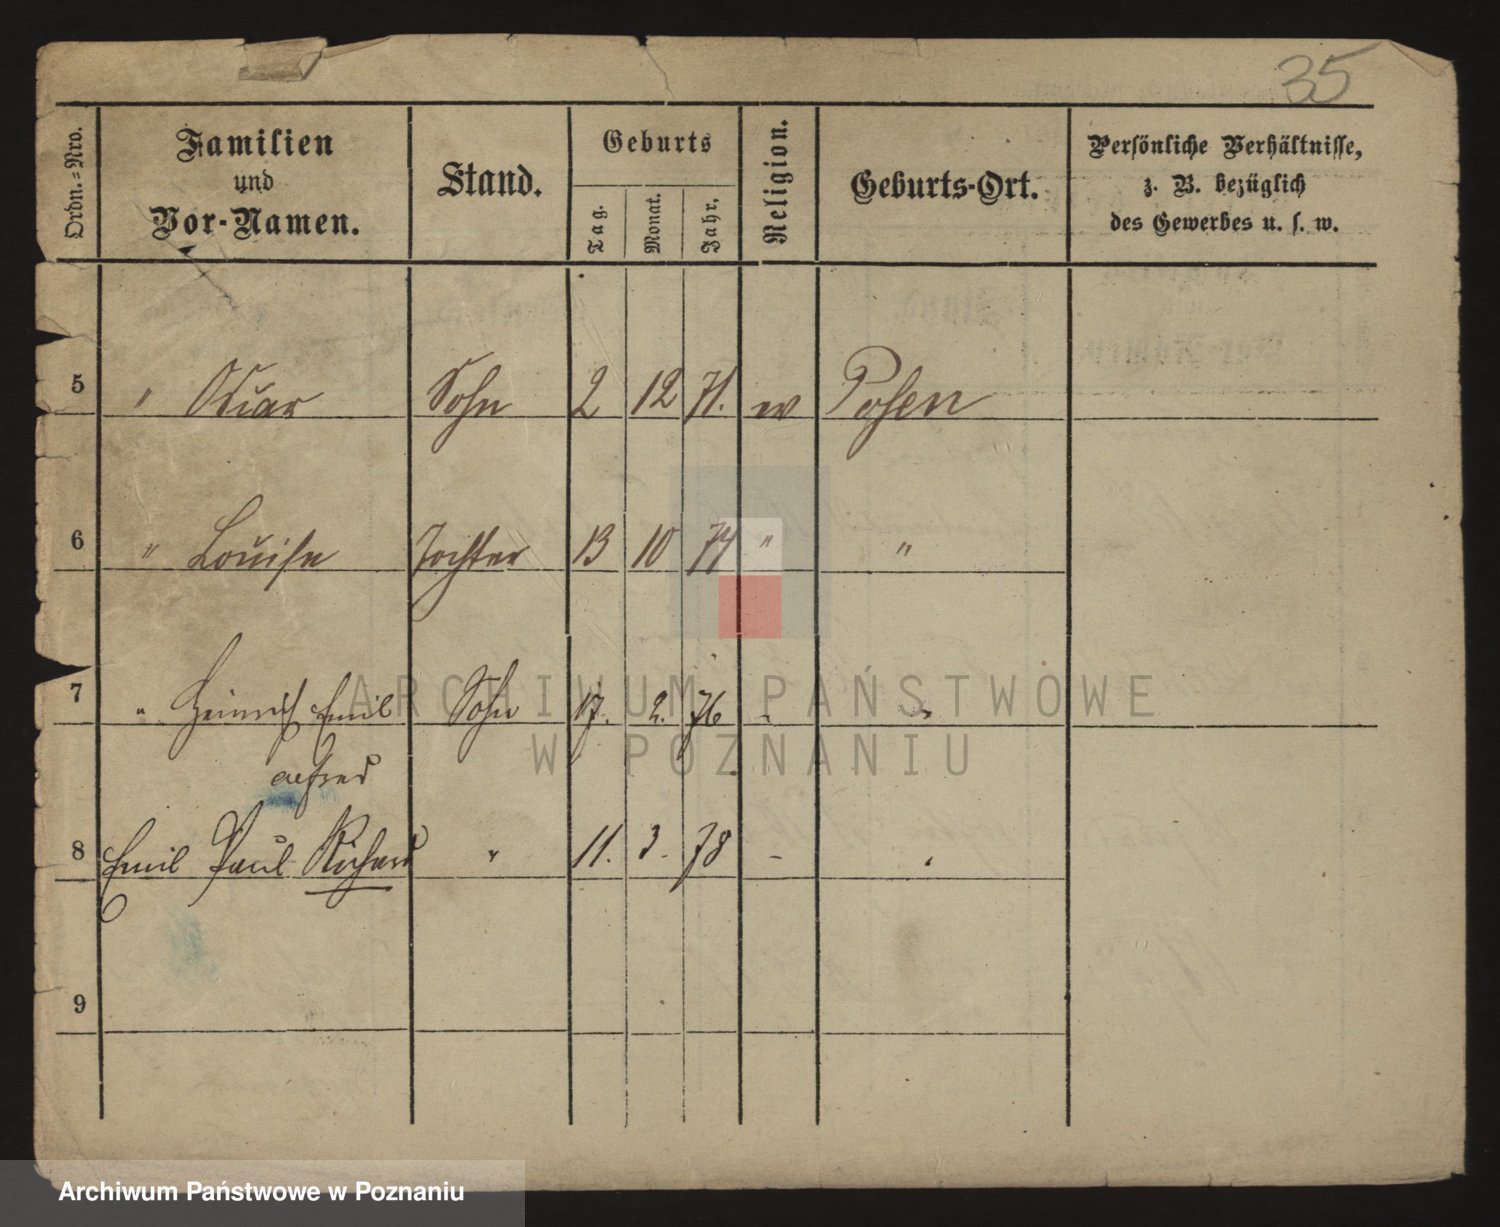 35
Ordn.=Nro.
Familien
und
Vor-Namen.
Stand.
Geburts
Tag.
Monat.
Jahr.
Religion.
Geburts-Ort.
Persönliche Verhältnisse,
z. B. bezüglich
des Gewerbes u. s. w.
5 " Sohn 2 12 71. ev Posen
6 " Louise Tochter 13 10 74 " "
7 " Heinrich Emil Sohn 17. 2. 76 - "
Alfred
8 Emil Paul Richard " 11. 3. 78 -
9
ARCHIWUM PAŃSTWOWE
W POZNANIU
Archiwum Państwowe w Poznaniu